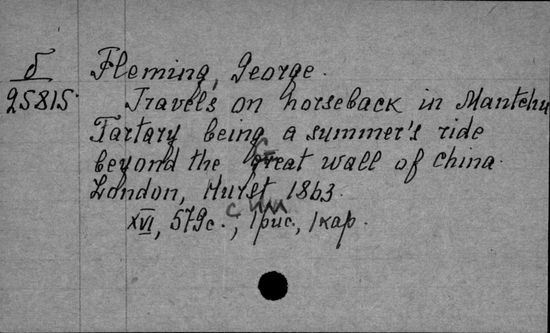 б
25815.
Fleming, George.
Travels on horseback in Mantchu
Tartary being a summer's ride
beyond the Great wall of China.
London, Hurst 1863.
с илл
XVI, 579с., 1рис., 1кар.